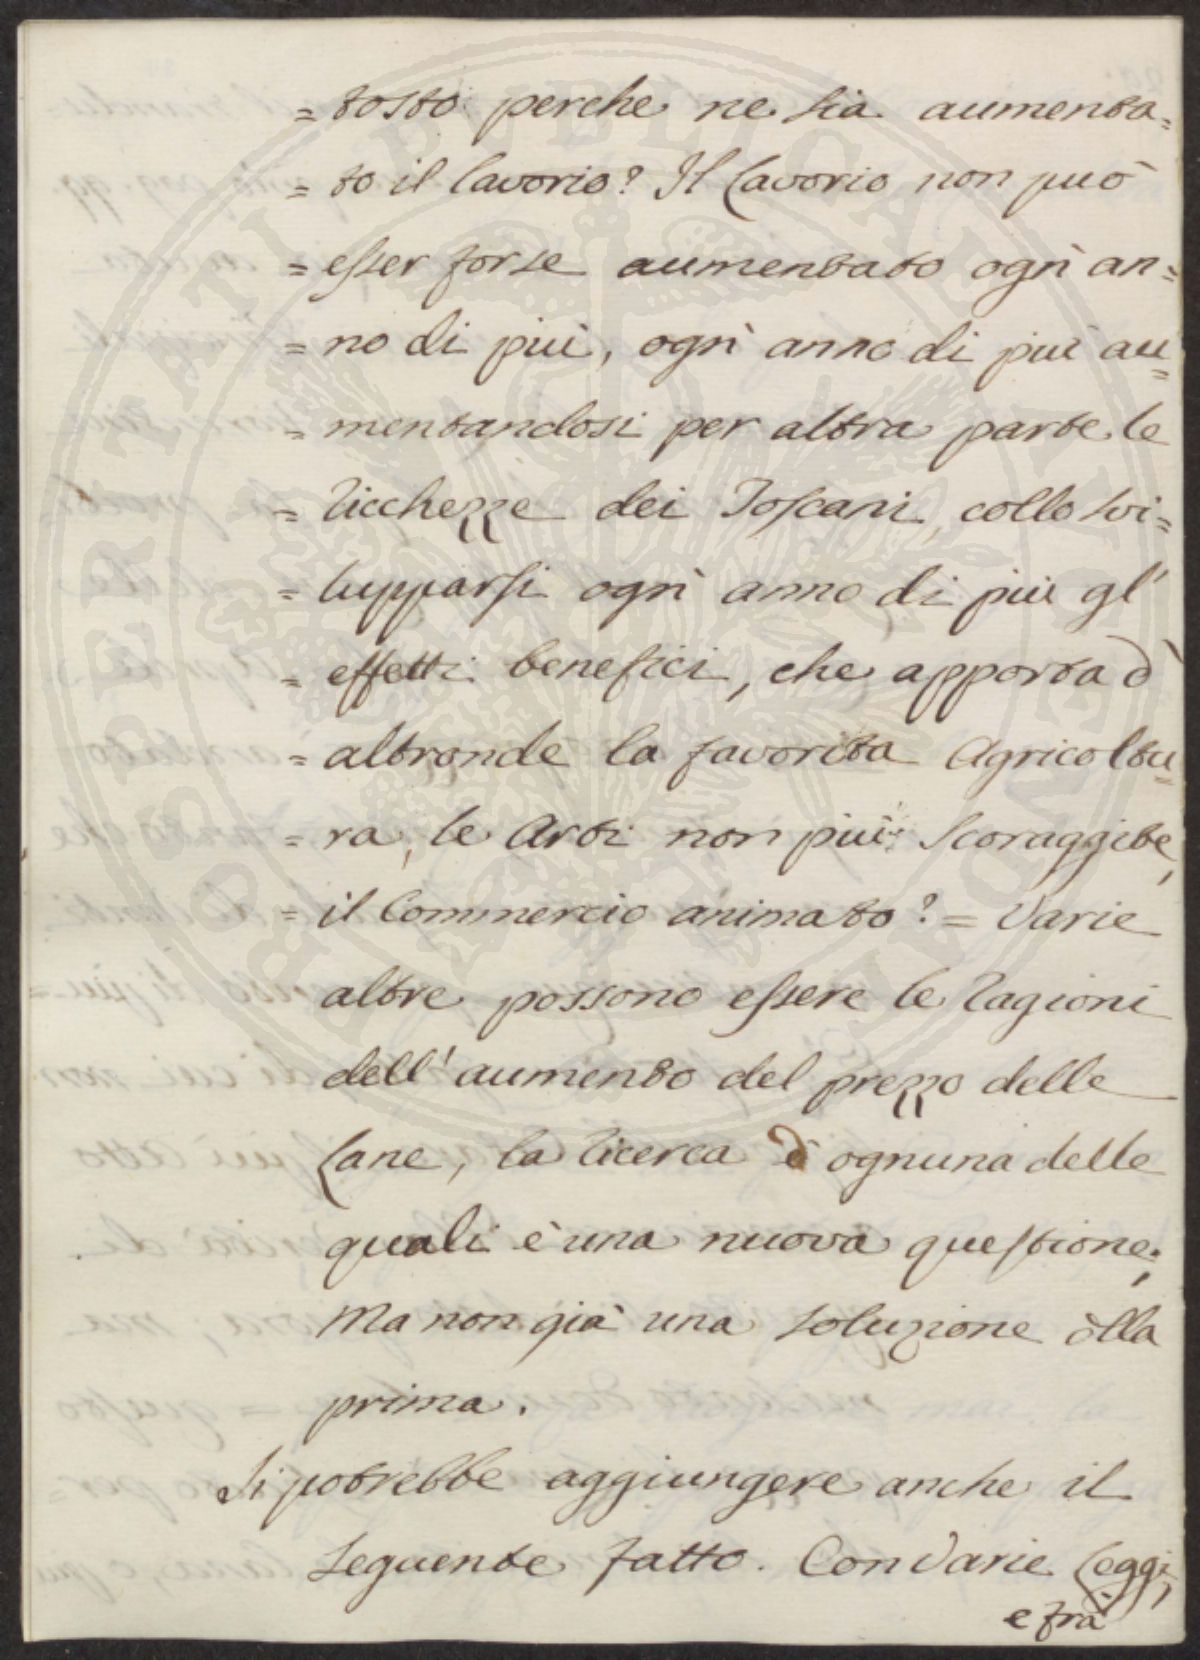 = tosto perche ne sia aumenta=
= to il lavorio? Il Lavorio non può
= esser forse aumentato ogni an=
= no di più, ogni anno di più au=
= mentandosi per altra parte le
= ricchezze dei Toscani, collo svi=
= lupparsi ogni anno di più gl'
= effetti benefici, che apporta d'
= altronde la favorita Agricoltu=
= ra, le Arti non più scoraggite,
= il Commercio animato? = Varie
altre possono essere le ragioni
dell'aumento del prezzo delle
Lane, la ricerca d'ognuna delle
quali è una nuova questione;
Ma non già una soluzione alla
prima.
Si potrebbe aggiungere anche il
seguente fatto. Con varie Leggi,
e frà
PROSPERITATI PUBLICAE AUGENDAE